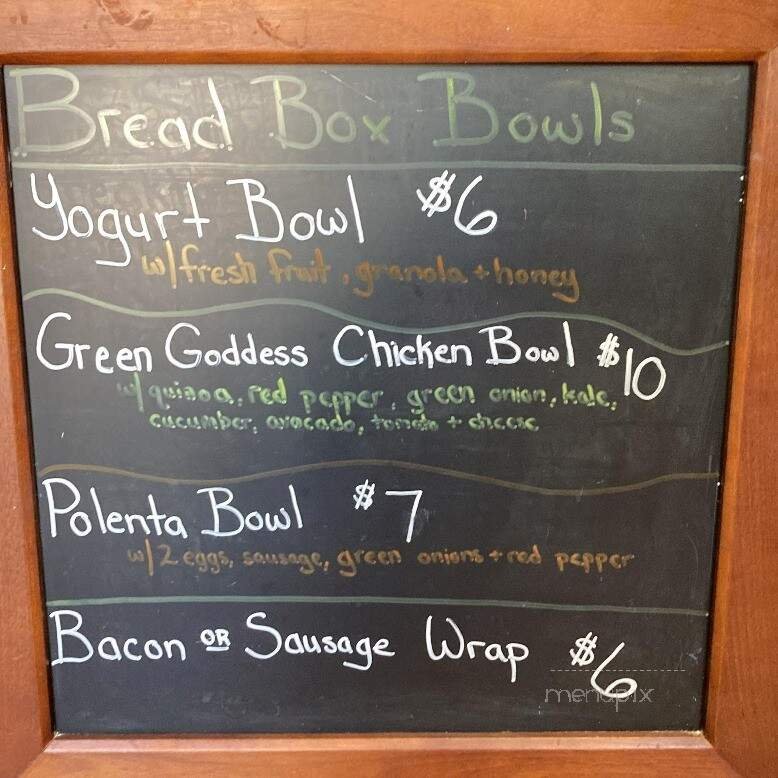 Bread Box Bowls
Yogurt Bowl $6
w/fresh fruit, granola + honey
Green Goddess Chicken Bowl $10
w/ quinoa, red pepper, green onion, kale,
cucumber, avocado, tomato + cheese
Polenta Bowl $7
w/2 eggs, sausage, green onions + red pepper
Bacon OR Sausage Wrap $6
menupix